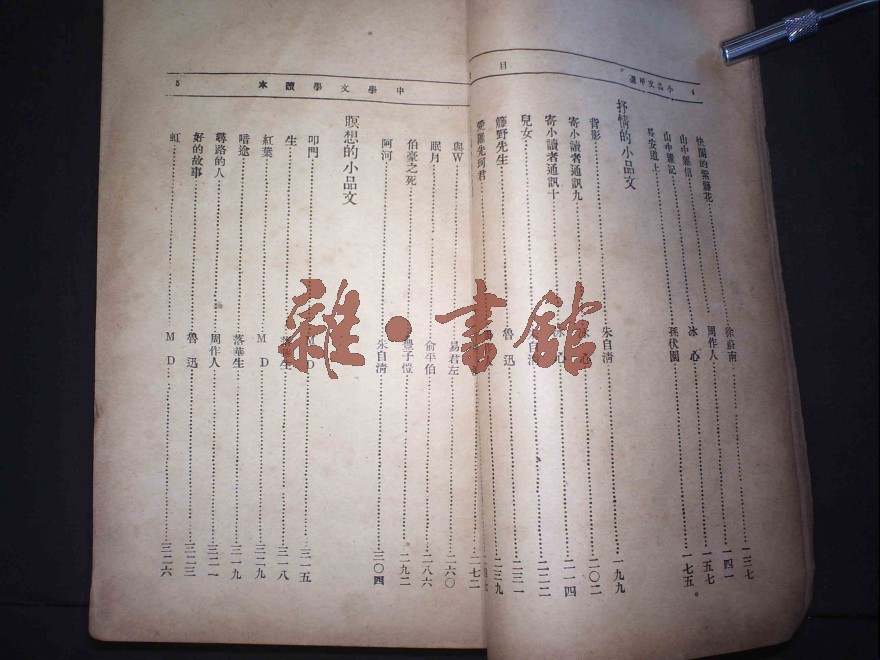 小品文甲選
4
快閣的紫藤花 徐蔚南 一三七
山中雜信 周作人 一四一
山中雜記 冰心 一五七
長安道上 孫伏園 一七五
抒情的小品文
背影 朱自清 一九九
寄小讀者通訊九 冰心 二〇二
寄小讀者通訊十 冰心 二一四
兒女 朱自清 二二二
藤野先生 魯迅 二三一
愛羅先珂君 二三九
目
中學文學讀本
5
與W 易君左 二六〇
眠月 俞平伯
伯豪之死 豐子愷 二八六
阿河 朱自清 二九二
三〇四
瞑想的小品文
叩門 MD 三一五
生 落華生 三一八
紅葉 MD 三一九
暗途 落華生 三一九
尋路的人 周作人 三二一
好的故事 魯迅 三二三
虹 MD 三二六
雜·書館